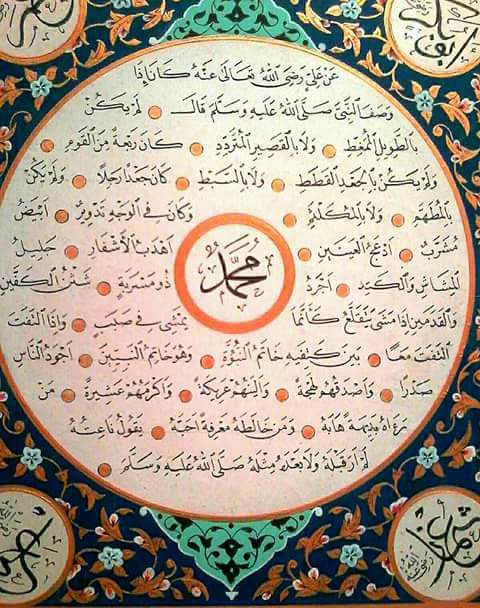 عَنْ عَلِيٍّ رَضِيَ اللهُ تَعَالَى عَنْهُ كَانَ إِذَا
وَصَفَ النَّبِيَّ صَلَّى اللهُ عَلَيْهِ وَسَلَّمَ قَالَ لَمْ يَكُنْ
بِالطَّوِيلِ الْمُمَّغِطِ وَلَا بِالْقَصِيرِ الْمُتَرَدِّدِ كَانَ رَبْعَةً مِنَ الْقَوْمِ
وَلَمْ يَكُنْ بِالْجَعْدِ الْقَطَطِ وَلَا بِالسَّبْطِ كَانَ جَعْدًا رَجِلًا وَلَمْ يَكُنْ
بِالْمُطَهَّمِ وَلَا بِالْمُكَلْثَمِ وَكَانَ فِي الْوَجْهِ تَدْوِيرٌ أَبْيَضُ
مُشْرَبٌ أَدْعَجُ الْعَيْنَيْنِ أَهْدَبُ الْأَشْفَارِ جَلِيلُ
الْمُشَاشِ وَالْكَتَدِ أَجْرَدُ مُحَمَّد ذُو مَسْرُبَةٍ شَثْنُ الْكَفَّيْنِ
وَالْقَدَمَيْنِ إِذَا مَشَى يَتَقَلَّعُ كَأَنَّمَا يَمْشِي فِي صَبَبٍ وَإِذَا الْتَفَتَ
الْتَفَتَ مَعًا بَيْنَ كَتِفَيْهِ خَاتَمُ النُّبُوَّةِ وَهُوَ خَاتَمُ النَّبِيِّينَ أَجْوَدُ النَّاسِ
صَدْرًا وَأَصْدَقُهُمْ لَهْجَةً وَأَلْيَنُهُمْ عَرِيكَةً وَأَكْرَمُهُمْ عَشِيرَةً مَنْ
رَآهُ بَدِيهَةً هَابَهُ وَمَنْ خَالَطَهُ مَعْرِفَةً أَحَبَّهُ يَقُولُ نَاعِتُهُ
لَمْ أَرَ قَبْلَهُ وَلَا بَعْدَهُ مِثْلَهُ صَلَّى اللهُ عَلَيْهِ وَسَلَّمَ